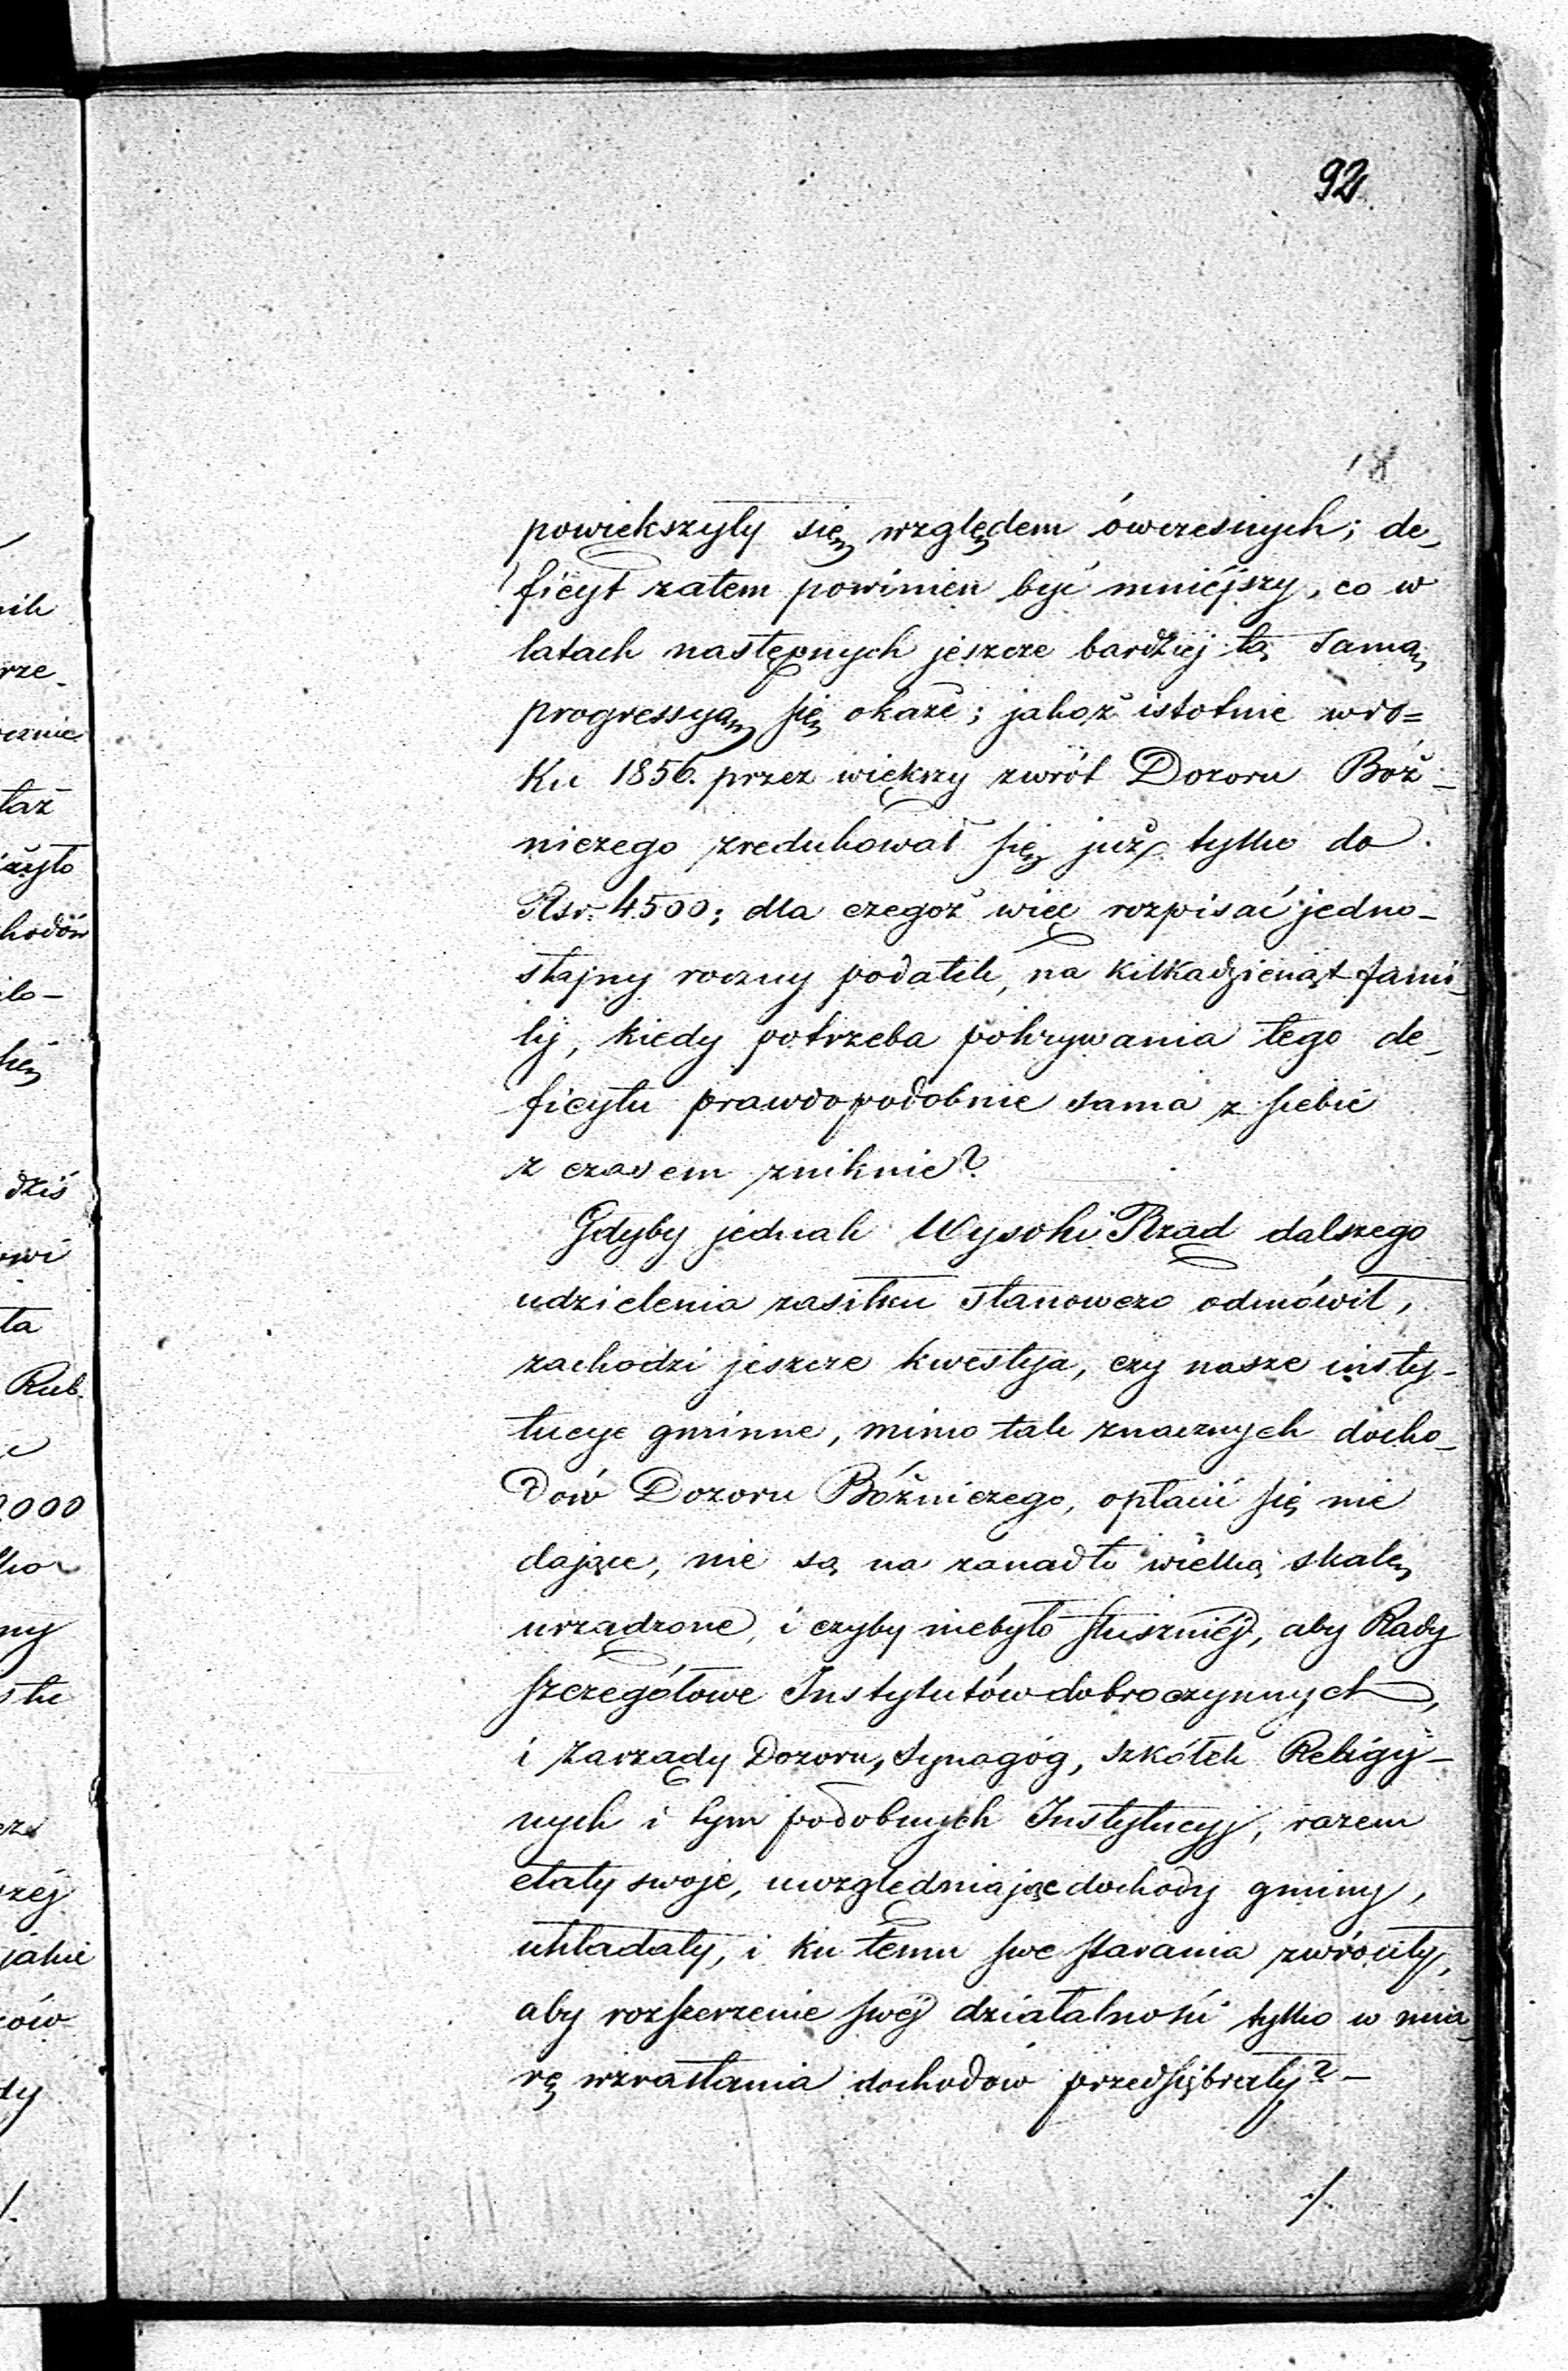 92
18
powiększyły się względem ówczesnych; de-
ficyt zatem powinien być mniéjszy, co w
latach następnych jeszcze bardziéj tą samą
progressyą się okaże; jakoż istotnie wro=
ku 1856. przez większy zwrót Dozoru Bóż-
niczego zredukował się już tylko do
Rsr. 4500; dla czegoż więc rozpisać jedno-
stajny roczny podatek, na kilkadziesiąt fami-
lij, kiedy potrzeba pokrywania tego de-
ficytu prawdopodobnie sama z siebie
z czasem zniknie?
Gdyby jednak Wysoki Rząd dalszego
udzielenia zasiłku stanowczo odmówił,
zachodzi jeszcze kwestya, czy nasze insty-
tucye gminne, mimo tak znacznych docho-
dów Dozoru Bóżniczego, opłacić się nie
dające, nie są na zanadto wielką skalę
urządzone, i czyby niebyło słuszniéj, aby Rady
szczegółowe Instytutów dobroczynnych,
i Zarządy Dozoru, Synagóg, szkółek Religij-
nych i tym podobnych Instytucyj, razem
etaty swoje, uwzględniając dochody gminy,
układały, i ku temu swe starania zwróciły,
aby rozszerzenie swéj działalności tylko w mia-
rę wzrastania dochodów przedsiębrały? -
./.
nik
rze-
cznie
taż
hodów
ilo-
się
dziś
owi
ta
Rub.
000
lko
ny
zéj
jakie
ców
dy